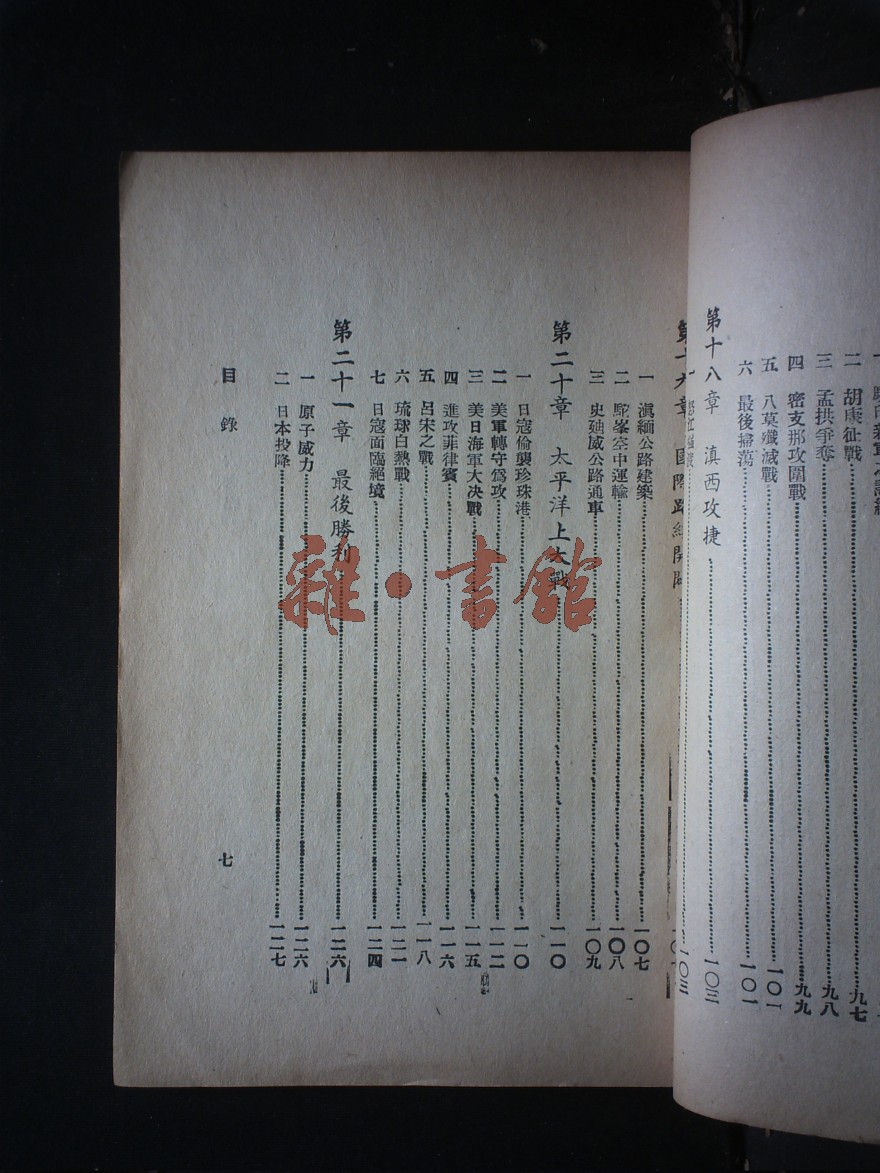 二 胡康征戰 九七
三 孟拱爭奪 九八
四 密支那攻圍戰 九九
五 八莫殲滅戰 一〇一
六 最後掃蕩 一〇一
第十八章 滇西攻捷 一〇三
一〇三
第十九章 國際路線開闢
一 滇緬公路建築 一〇七
二 駝峯空中運輸 一〇八
三 史廸威公路通車 一〇九
第二十章 太平洋上大戰 一一〇
一 日寇偷襲珍珠港 一一〇
二 美軍轉守爲攻 一一二
三 美日海軍大決戰 一一五
四 進攻菲律賓 一一六
五 呂宋之戰 一一八
六 琉球白熱戰 一二一
七 日寇面臨絕境 一二四
第二十一章 最後勝利 一二六
一 原子威力 一二六
二 日本投降 一二七
目錄
七
雜·書館